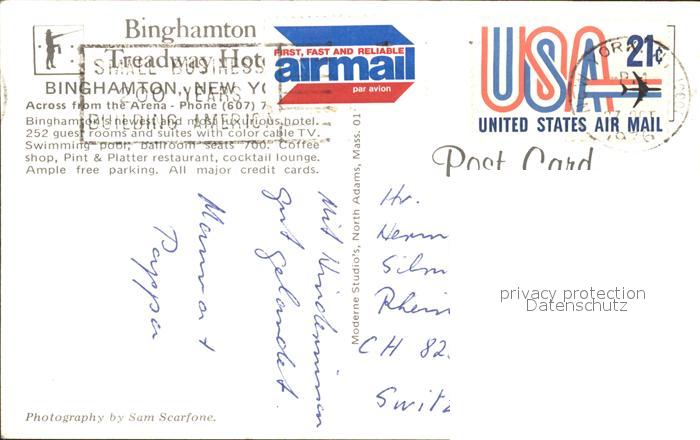 Binghamton
Treadway Hotel
BINGHAMTON, NEW YO
Across from the Arena - Phone (607) 7
Binghamton's newest and most luxurious hotel.
252 guest rooms and suites with color cable TV.
Swimming pool, ballroom seats 700. Coffee
shop, Pint & Platter restaurant, cocktail lounge.
Ample free parking. All major credit cards.
SMALL BUSINESS
200 YEARS
BUILDING AMERICA
FIRST, FAST AND RELIABLE
airmail
par avion
USA 21c
UNITED STATES AIR MAIL
Post Card
Moderne Studio's, North Adams, Mass. 01
Mit
gut gelandet.
Mamma +
Pappa
Hr.
Herm
Silm
Rhein
CH 82
Switz
privacy protection
Datenschutz
Photography by Sam Scarfone.